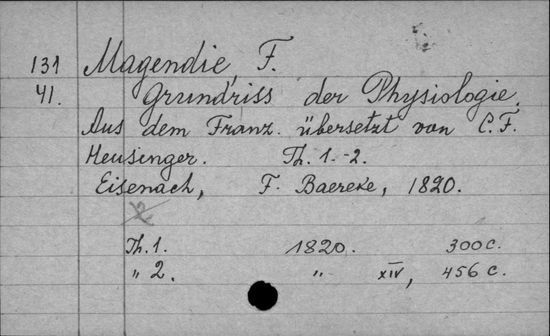 131 Magendie, F.
41. Grundriss der Physiologie.
Aus dem Franz. übersetzt von C. F.
Heusinger. Th. 1.-2.
Eisenach, F. Baereke, 1820.
Th. 1. 1820. 300 c.
" 2. " XIV, 456 c.